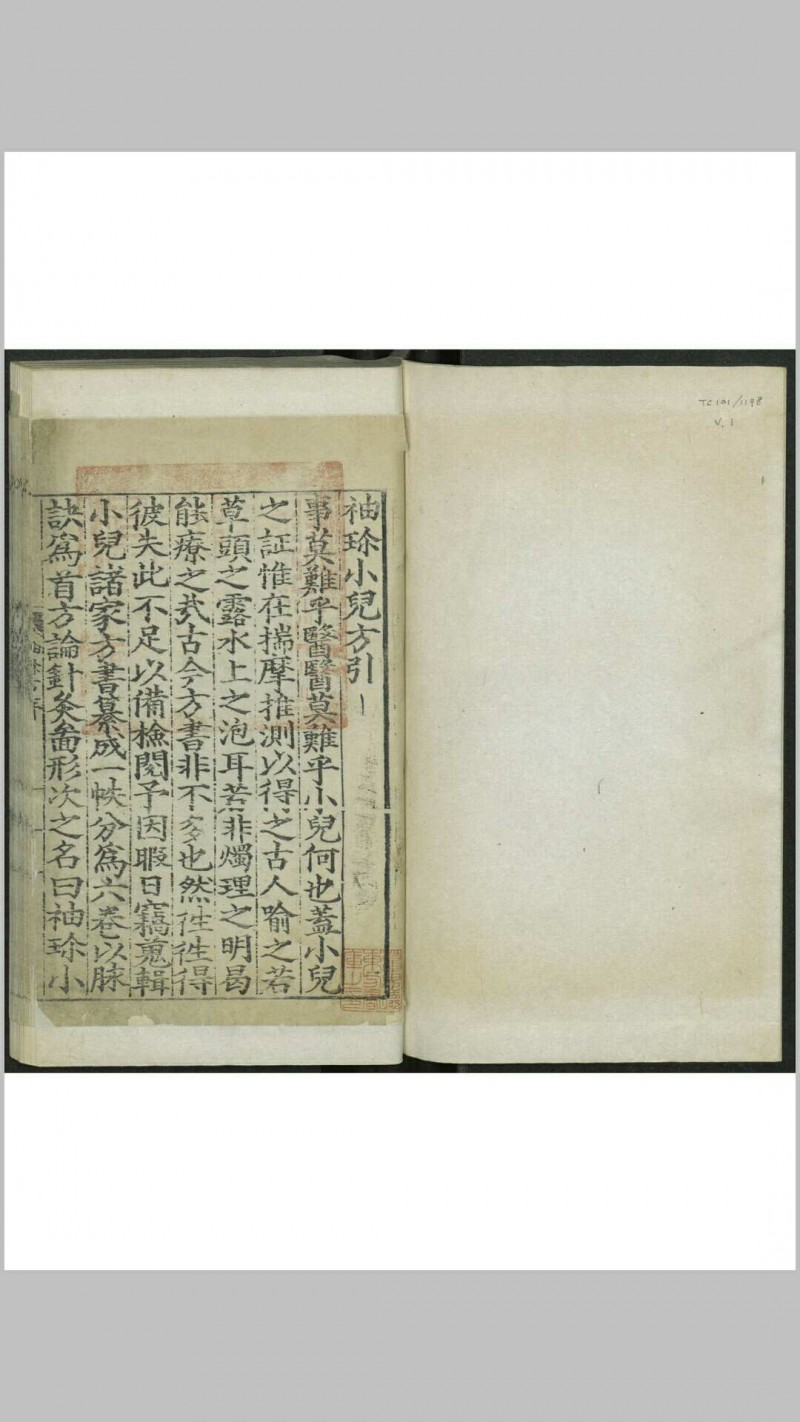 袖珎小兒方引
事莫難乎醫醫莫難乎小兒何也蓋小兒
之証惟在揣摩推測以得之古人喻之若
草頭之露水上之泡耳若非燭理之明曷
能療之㢤古今方書非不多也然徃徃得
彼失此不足以備檢閱予因暇日竊蒐輯
小兒諸家方書纂成一帙分爲六卷以脉
訣爲首方論針灸啚形次之名曰袖珎小
TC 101/1198
V. 1